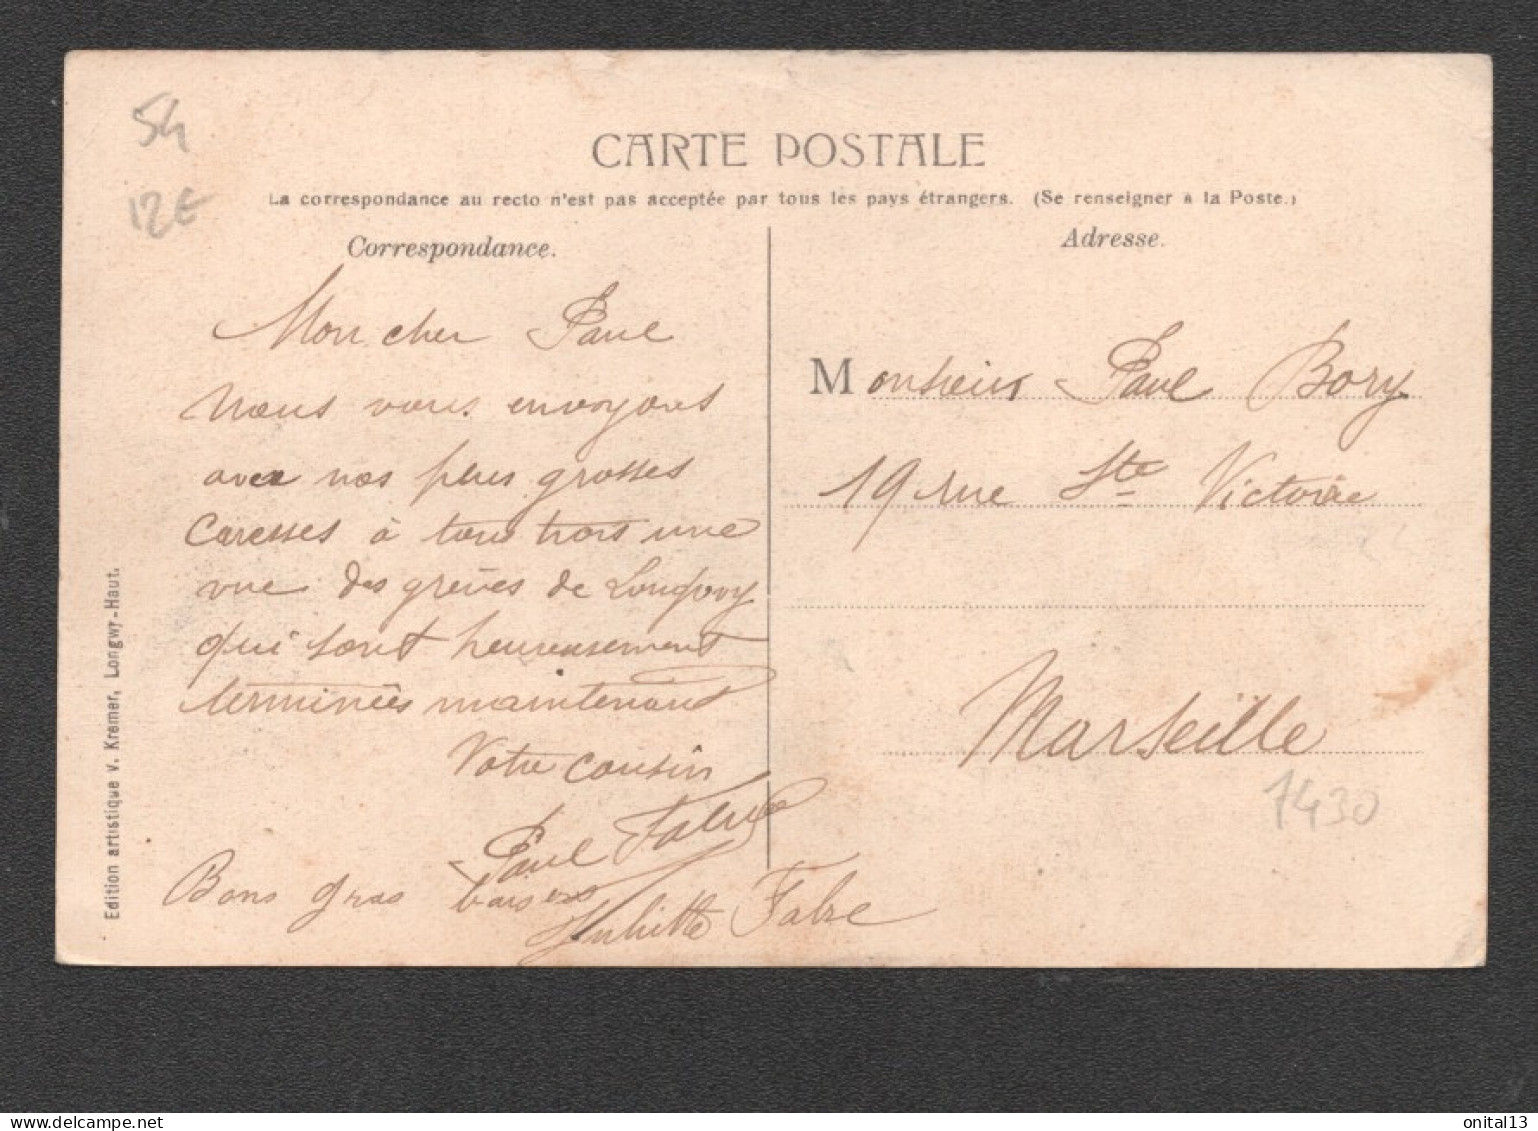 54
12€
CARTE POSTALE
La correspondance au recto n'est pas acceptée par tous les pays étrangers. (Se renseigner à la Poste.)
Correspondance.
Mon cher Paul
Nous vous envoyons
avec nos plus grosses
caresses à tous trois une
vue des grèves de Longwy
qui sont heureusement
terminées maintenant
Votre cousin
Paul Fabre
Bons gros baisers
Juliette Fabre
Adresse.
Monsieur Paul Bory
19 rue Ste Victoire
Marseille
7430
Edition artistique v. Kramer, Longwy-Haut.
delcampe.net
onital13